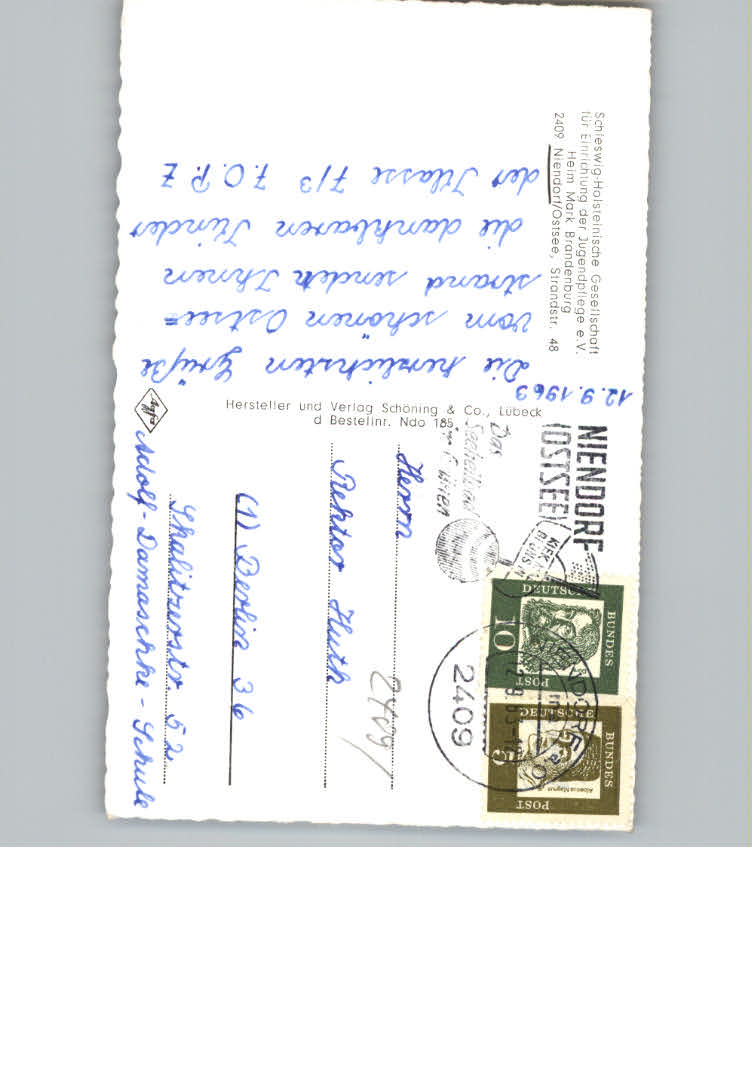 Schleswig-Holsteinische Gesellschaft
für Einrichtung der Jugendpflege e.V.
Heim Mark Brandenburg
2409 Niendorf/Ostsee, Strandstr. 48
12.9.1963
Die herzlichsten Grüße
vom schönen Ostsee=
strand senden Ihnen
die dankbaren Kinder
der Klasse 7/3 7. O.P.Z
Hersteller und Verlag Schöning & Co., Lübeck
d Bestellnr. Ndo 185
Agfa
NIENDORF
(OSTSEE)
Das
Seeheilbad
im Grünen
2409
12.9.63
DEUTSCHE
BUNDES
POST
10
DEUTSCHE
BUNDES
POST
5
Albertus Magnus
Herrn
Rektor Huth
2409/
(1) Berlin 36
Skalitzerstr. 52
Adolf-Damaschke-Schule